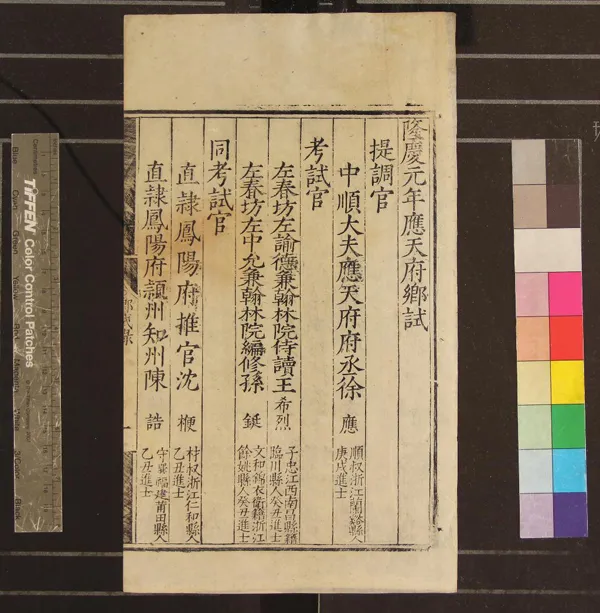 隆慶元年應天府鄉試
提調官
中順大夫應天府府丞徐 應
順叔浙江蘭谿縣人
庚戌進士
考試官
左春坊左諭德兼翰林院侍讀王 希烈
子忠江西南昌縣籍
臨川縣人癸丑進士
左春坊左中允兼翰林院編修孫 鋌
文和錦衣衛籍浙江
餘姚縣人癸丑進士
同考試官
直隸鳳陽府推官沈 楩
材叔浙江仁和縣人
乙丑進士
直隸鳳陽府潁州知州陳 誥
守襄福建莆田縣人
乙丑進士
TIFFEN Color Control Patches
Blue
Cyan
Green
Yellow
Red
Magenta
White
3/Color
Black